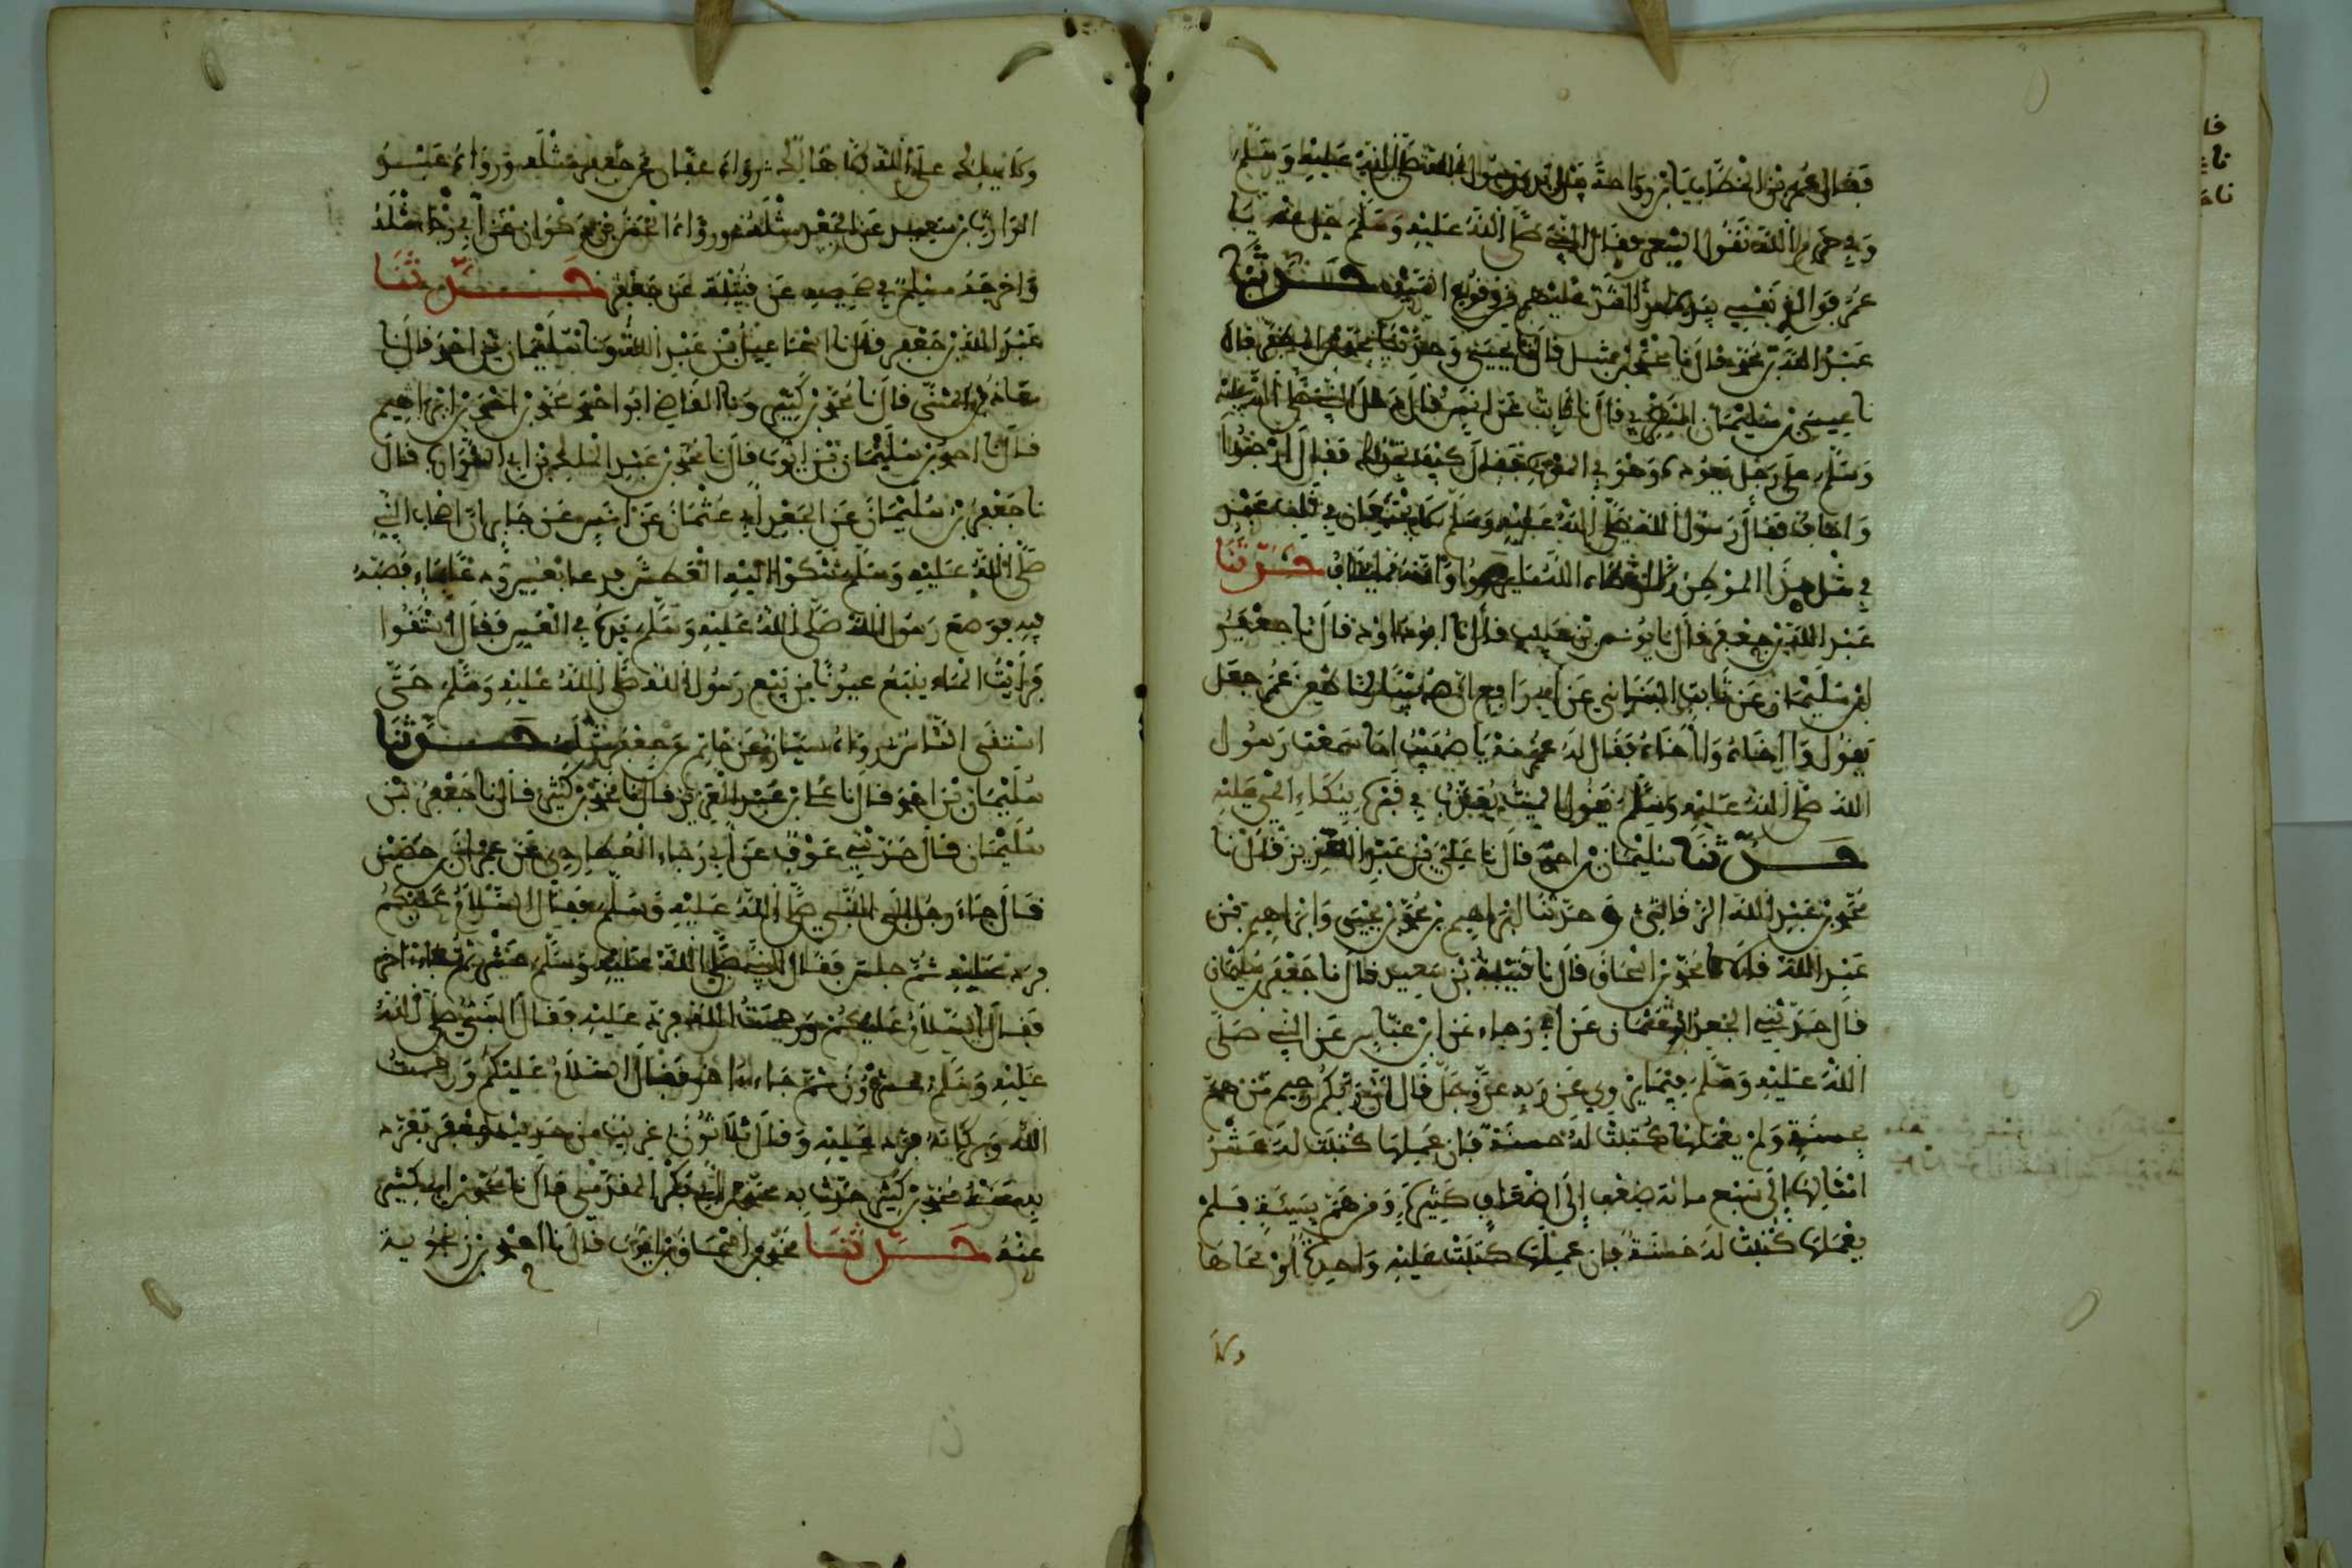 فقال عمر بن الخطاب يا بن رواحة بين يدي رسول الله صلى الله عليه وسلم
وفي حرم الله تقول الشعر فقال النبي صلى الله عليه وسلم خل عنه يا
عمر فوالذي نفسي بيده لهذا أشد عليهم من وقع النبل حدثنا
عبد الله بن محمد قال نا قال نا يحيى وحدثنا محمد بن المظفر قال
نا عيسى بن سليمان قال نا ثابت عن انس قال دخل النبي صلى الله عليه
وسلم على رجل يعوده وهو في الموت فقال كيف تجدك فقال أرجوا
واخاف فقال رسول الله صلى الله عليه وسلم لا يجتمعان في قلب عبد
في مثل هذا الموطن إلا أعطاه الله ما يرجوا وآمنه مما يخاف حدثنا
عبد الله بن جعفر قال نا يونس بن حبيب قال نا ابو داود قال نا جعفر
بن سليمان عن ثابت البناني عن أبي رافع ان صهيبا لما طعن عمر جعل
يقول وا اخاه وا اخاه فقال له عمر مه يا صهيب اما سمعت رسول
الله صلى الله عليه وسلم يقول الميت يعذب في قبره ببكاء الحي عليه
حدثنا سليمان بن احمد قال نا علي بن عبد العزيز قال نا
محمد بن عبد الله الرقاشي وحدثنا ابراهيم بن محمد بن يحيى وابراهيم بن
عبد الله قالا نا محمد بن اسحاق قال نا قتيبة بن سعيد قال نا جعفر بن سليمان
قال حدثني الجعد أبو عثمان عن أبي رجاء عن ابن عباس عن النبي صلى
الله عليه وسلم فيما يروي عن ربه عز وجل قال ان ربكم رحيم من هم
بحسنة ولم يعملها كتبت له حسنة فإن عملها كتبت له عشر
امثالها إلى سبع مائة ضعف إلى اضعاف كثيرة ومن هم بسيئة فلم
يعملها كتبت له حسنة فإن عملها كتبت عليه واحدة أو محاها
ولا
ولا يهلك على الله إلا هالك رواه عفان عن جعفر مثله ورواه عبد
الوارث بن سعيد عن الجعد مثله ورواه الحسن بن ذكوان عن أبي رجاء مثله
واخرجه مسلم في صحيحه عن قتيبة عن جعفر حدثنا
عبد الله بن جعفر قال نا اسماعيل بن عبد الله ونا سليمان بن احمد قال نا
معاذ بن المثنى قال نا محمد بن كثير ونا القاضي ابو احمد محمد بن احمد بن ابراهيم
قال نا احمد بن سليمان بن ايوب قال نا محمد بن عبد الملك بن ابي الشوارب قال
نا جعفر بن سليمان عن الجعد أبي عثمان عن انس عن جابر ان اصحاب النبي
صلى الله عليه وسلم شكوا اليه العطش فدعا بعس ودعا بماء فصبه
فيه فوضع رسول الله صلى الله عليه وسلم يده في العس فقال استقوا
فرأيت الماء ينبع عيونا من بين رسول الله صلى الله عليه وسلم حتى
استقى الناس رواه سيار بن حاتم عن جعفر مثله حدثنا
سليمان بن احمد قال نا علي بن عبد العزيز قال نا محمد بن كثير قال نا جعفر بن
سليمان قال حدثني عوف عن أبي رجاء العطاردي عن عمران بن حصين
قال جاء رجل الى النبي صلى الله عليه وسلم فقال السلام عليكم
فرد عليه ثم جلس فقال النبي صلى الله عليه وسلم عشر ثم جاء اخر
فقال السلام عليكم ورحمت الله فرد عليه فقال النبي صلى الله
عليه وسلم عشرون ثم جاء اخر فقال السلام عليكم ورحمت
الله وبركاته فرد عليه وقال ثلاثون غريب من حديث جعفر تفرد
به عنه محمد بن كثير حدث به محمد بن ابي بكر المقدمي قال نا محمد بن كثير
عنه حدثنا محمد بن اسحاق بن ايوب قال نا احمد بن زنجويه